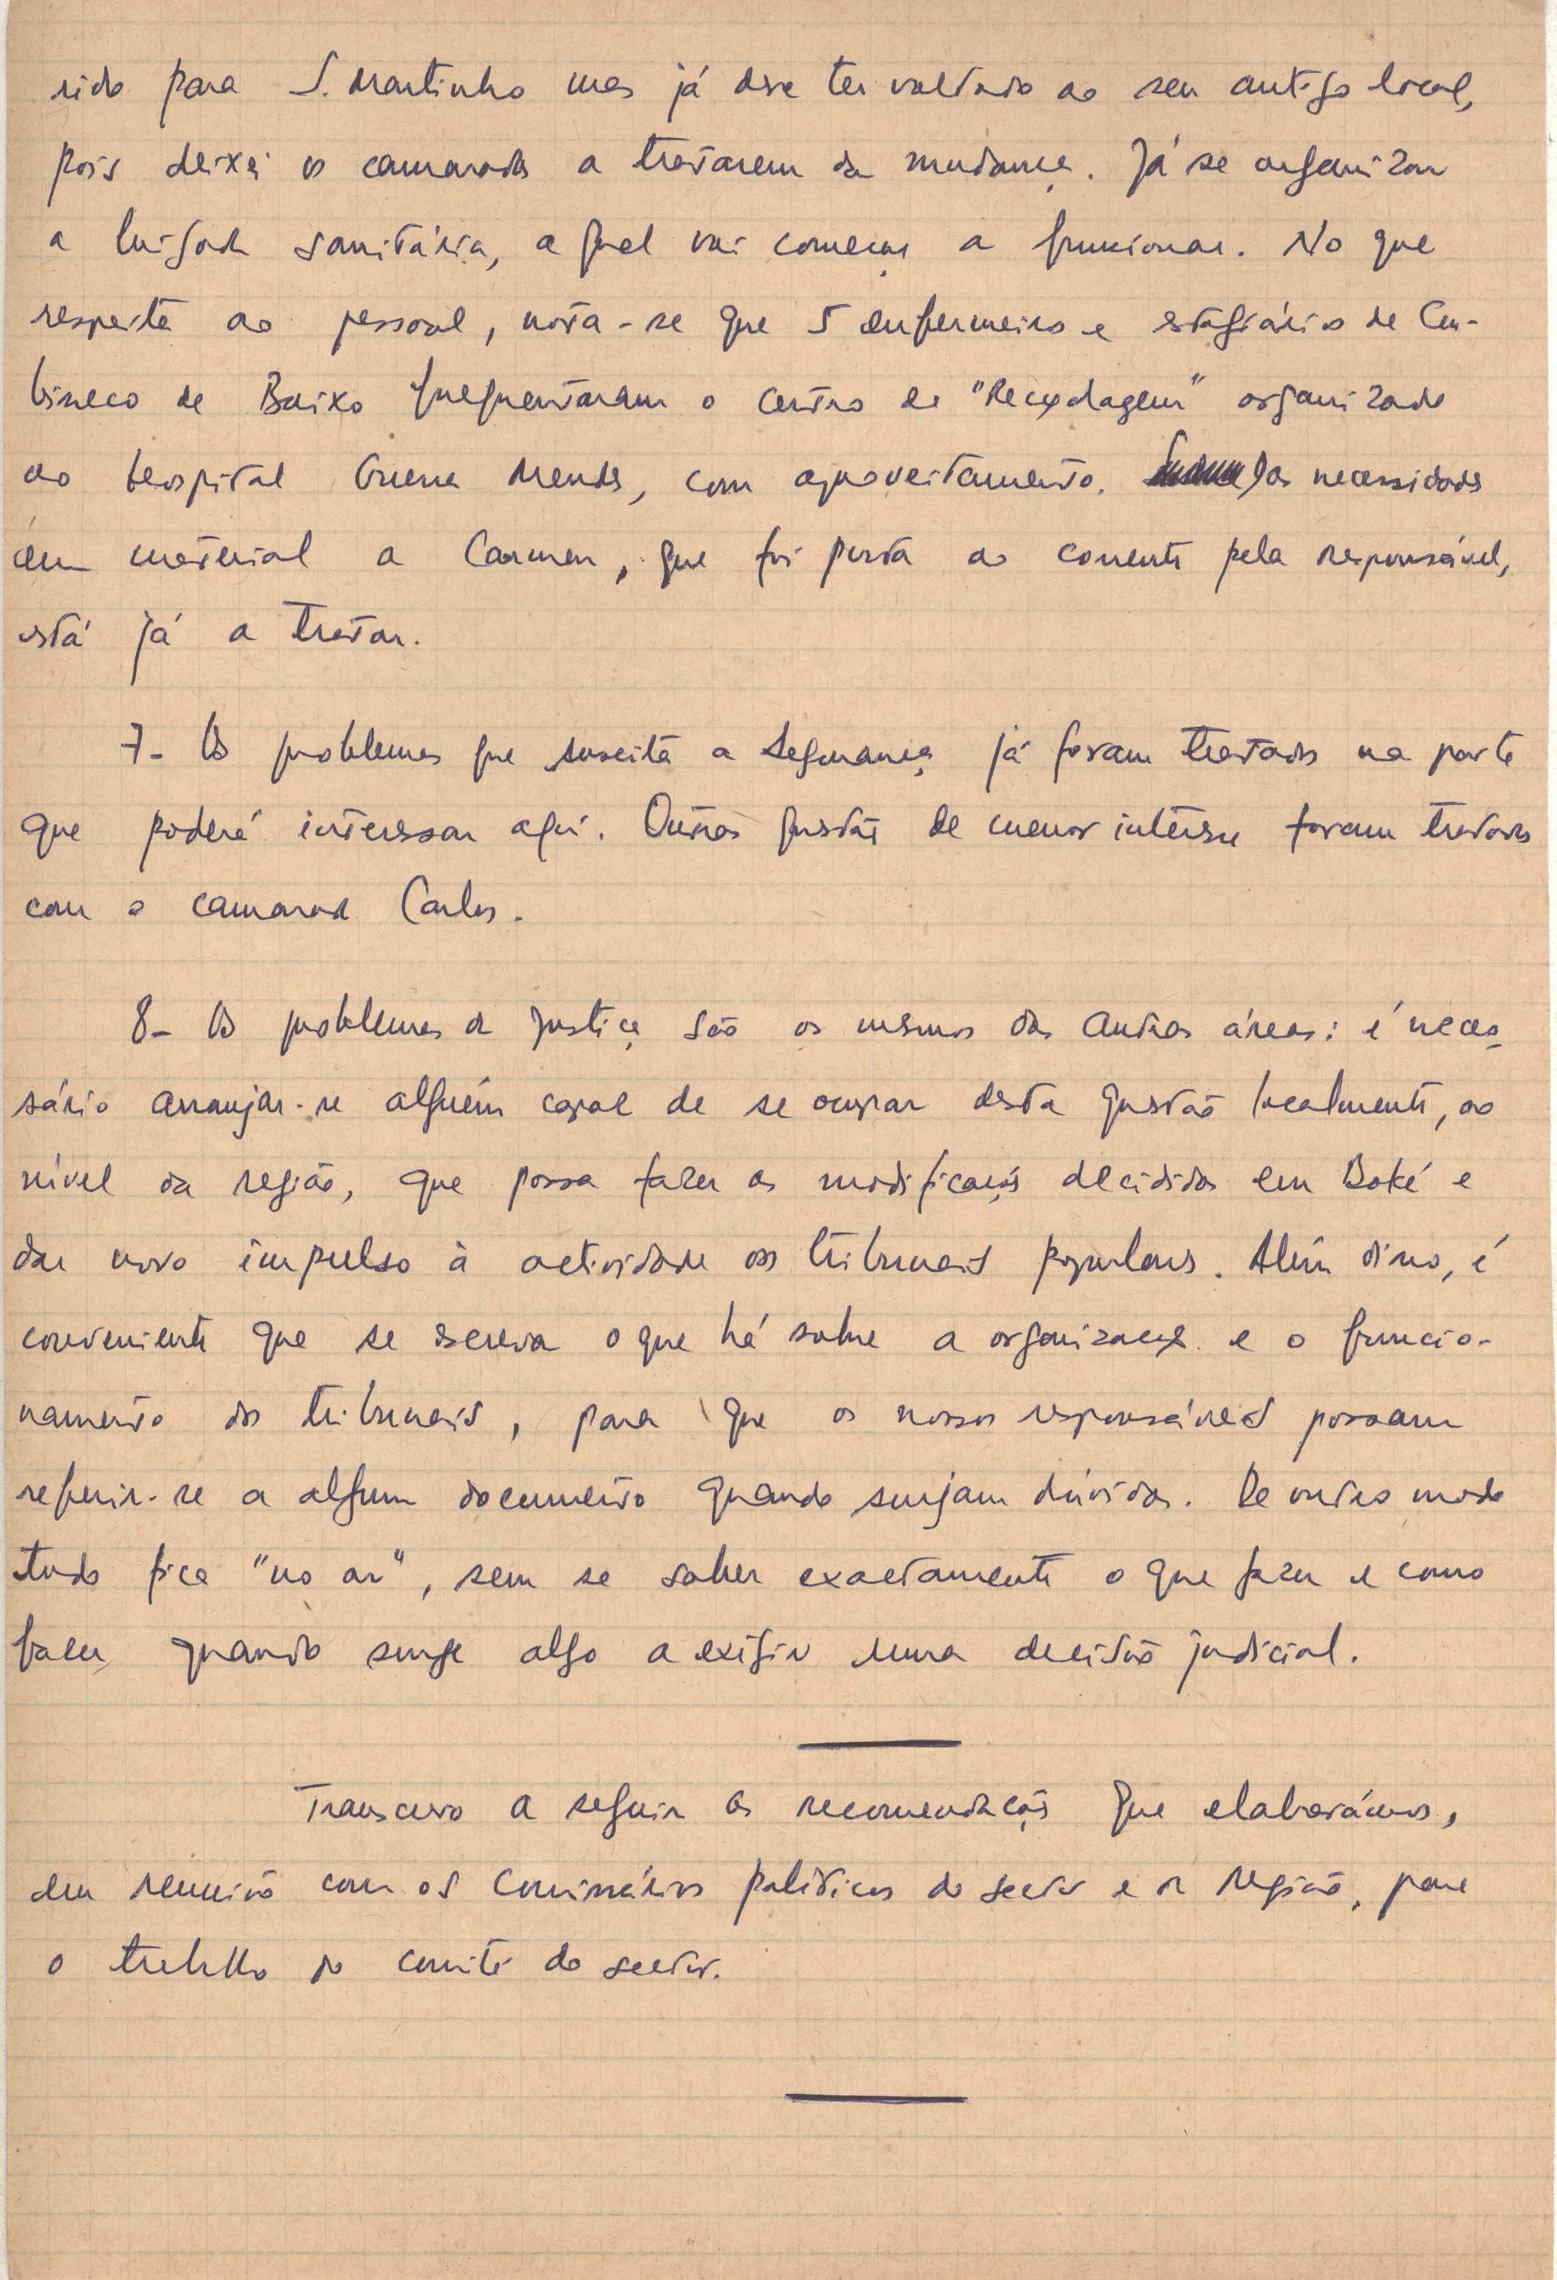 rido para S. Martinho mas já deve ter voltado ao seu antigo local,
pois deixei os camaradas a tratarem da mudança. Já se organizou
a brigada sanitária, a qual vai começar a funcionar. No que
respeita ao pessoal, nota-se que 5 enfermeiros e estagiários de Cu-
bisseco de Baixo frequentaram o centro de "Recyclagem" organizado
no hospital Guerra Mendes, com aproveitamento. Das necessidades
em material a Carmen, que foi posta ao corrente pela responsável,
está já a tratar.
7- Os problemas que suscita a segurança já foram tratados na parte
que poderá interessar aqui. Outras questões de menor interesse foram tratadas
com o camarada Carlos.
8- Os problemas da justiça são os mesmos das outras áreas: é neces-
sário arranjar-se alguém capaz de se ocupar desta questão localmente, ao
nível da região, que possa fazer as modificações decididas em Boké e
dar novo impulso à actividade dos tribunais populares. Além disso, é
conveniente que se escreva o que há sobre a organização e o funcio-
namento dos tribunais, para que os nossos responsáveis possam
referir-se a algum documento quando surjam dúvidas. De outro modo
tudo fica "no ar", sem se saber exactamente o que fazer e como
fazer, quando surge algo a exigir uma decisão judicial.
Transcrevo a seguir as recomendações que elaborámos,
em reunião com os comissários políticos do sector e da região, para
o trabalho do comité do sector.